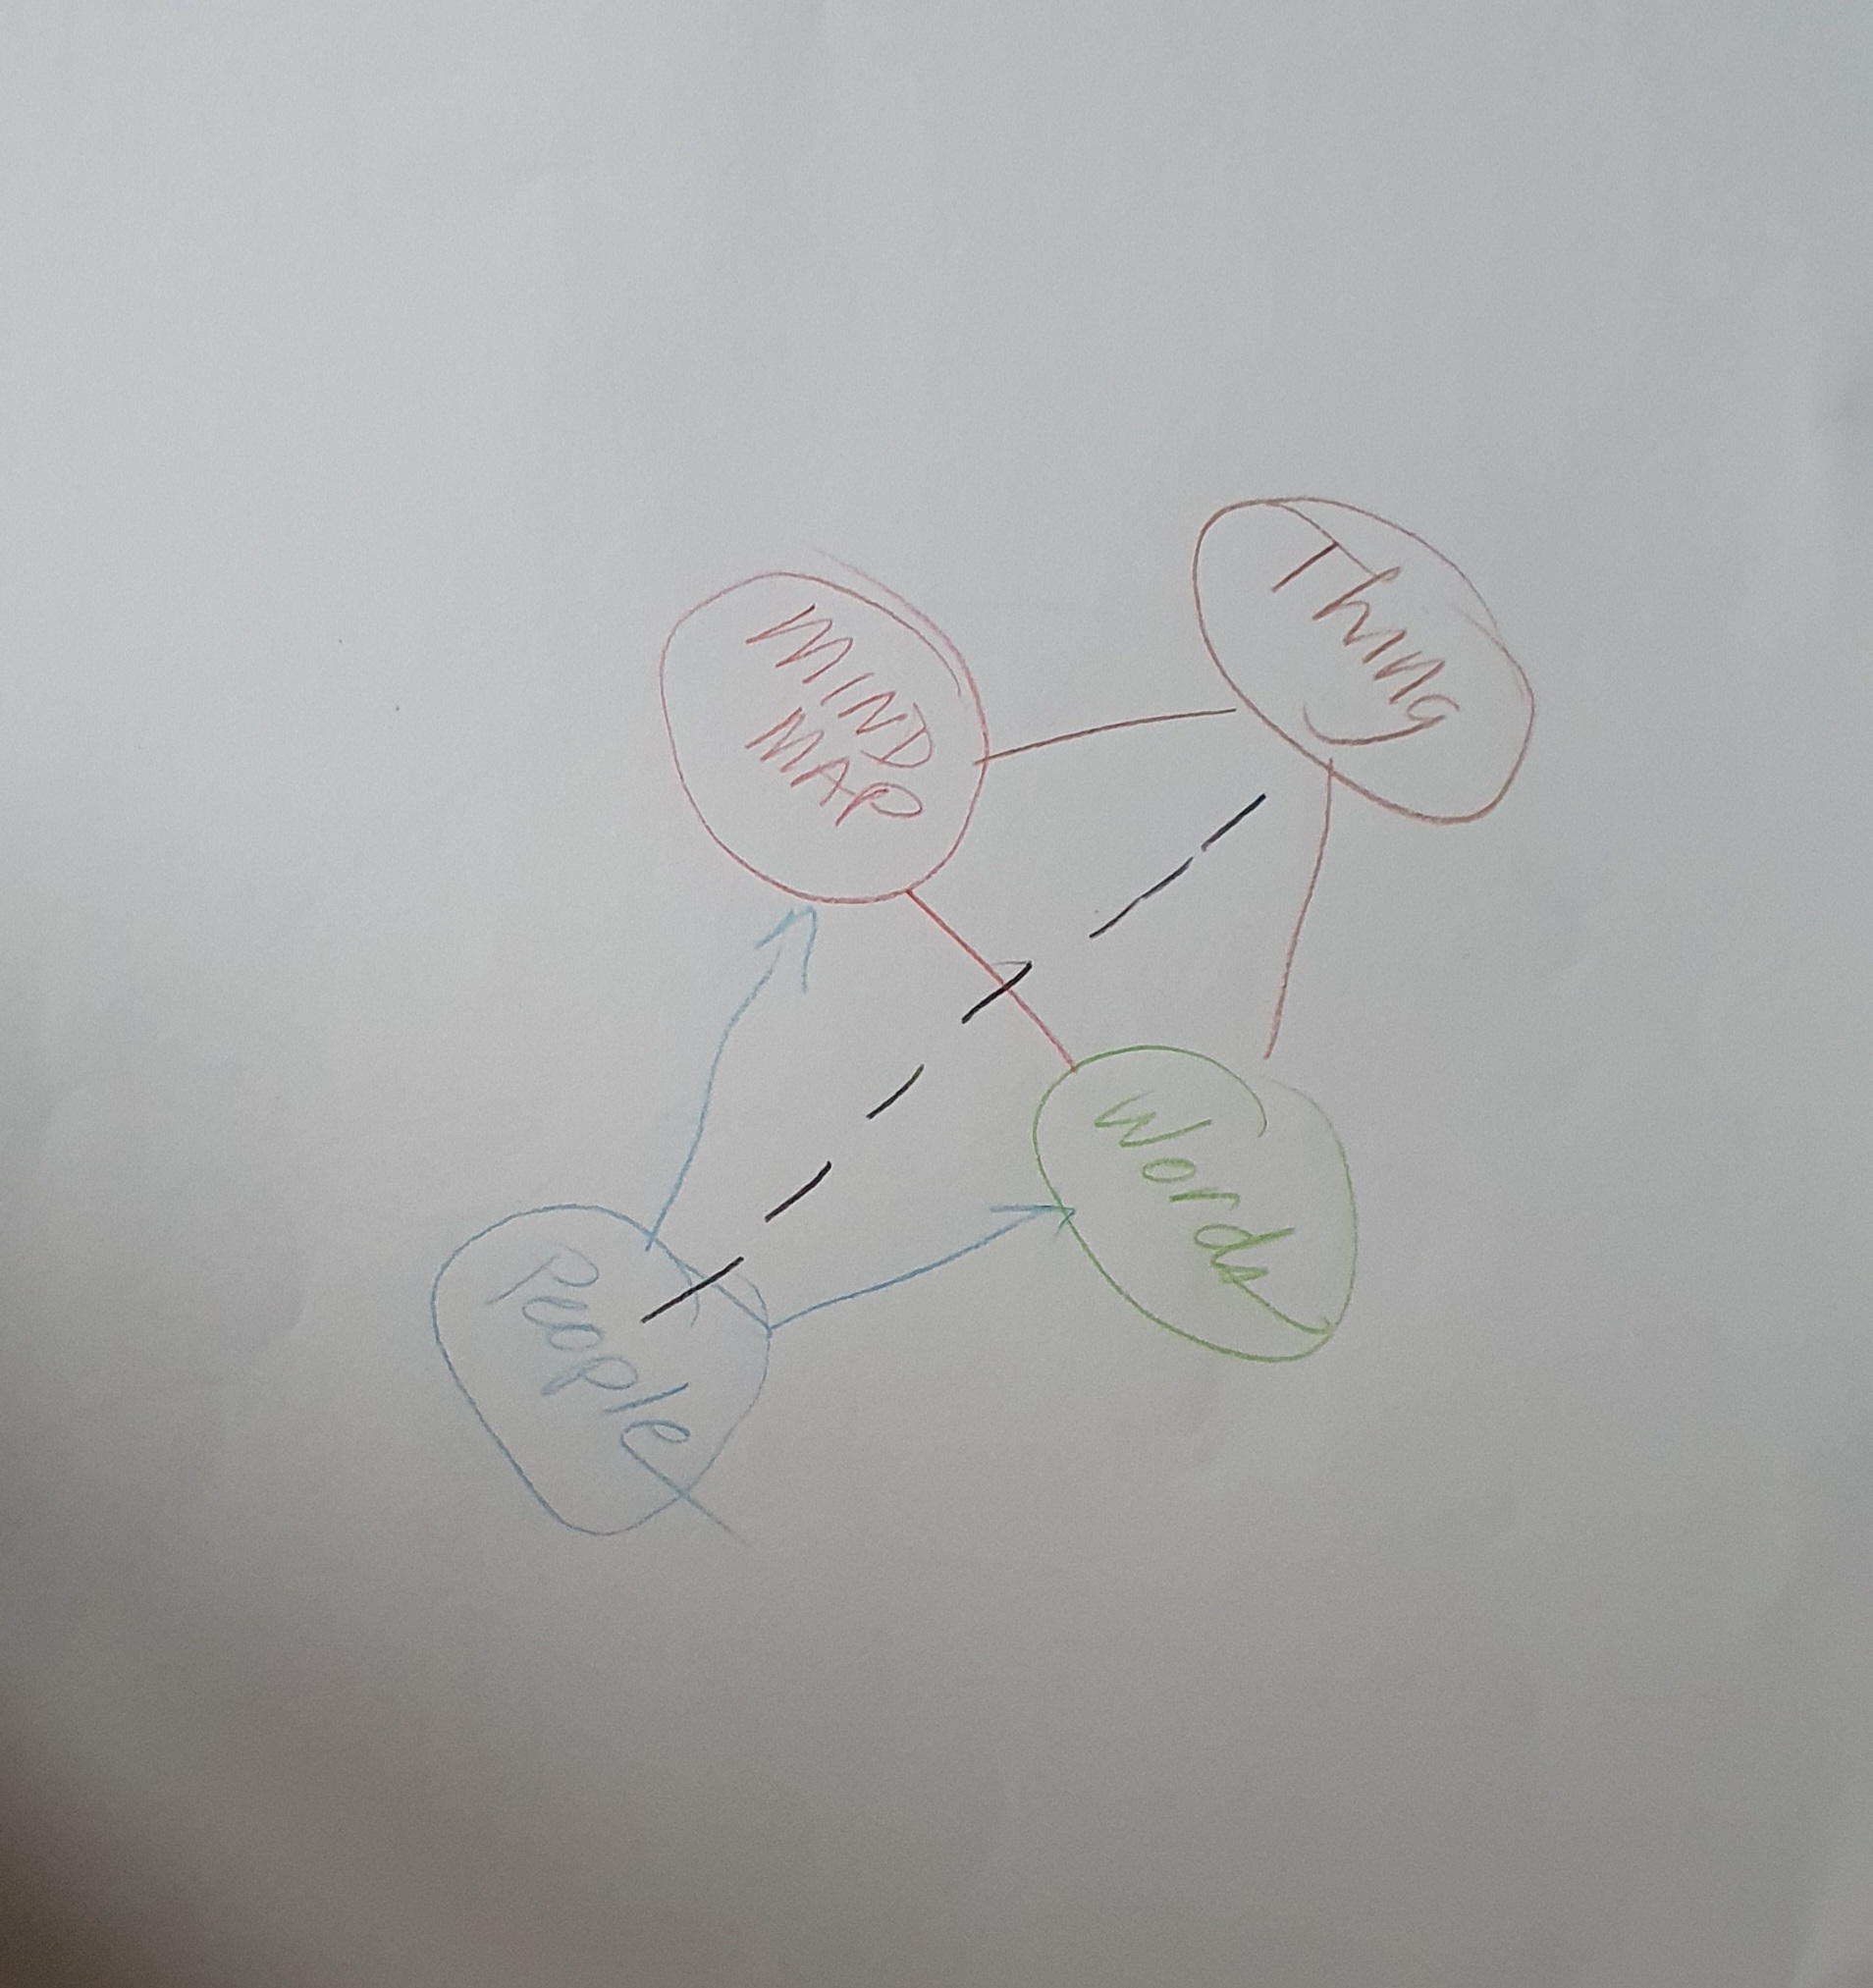 MIND
MAP
Thing
Words
People